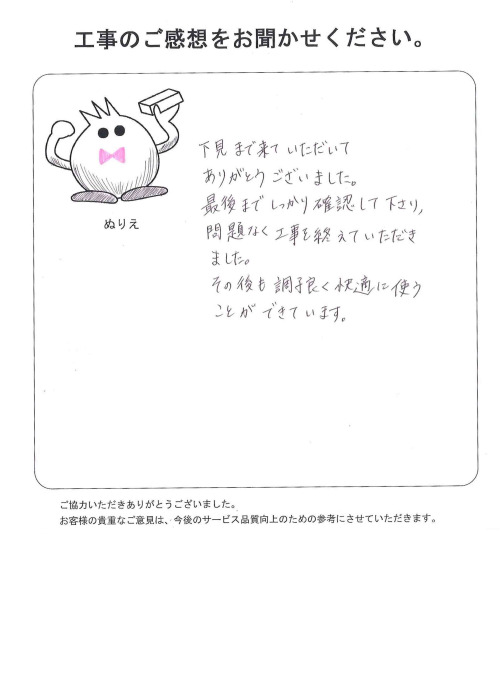 工事のご感想をお聞かせください。
ぬりえ
下見まで来ていただいて
ありがとうございました。
最後までしっかり確認して下さり,
問題なく工事を終えていただき
ました。
その後も調子良く快適に使う
ことができています。
ご協力いただきありがとうございました。
お客様の貴重なご意見は、今後のサービス品質向上のための参考にさせていただきます。